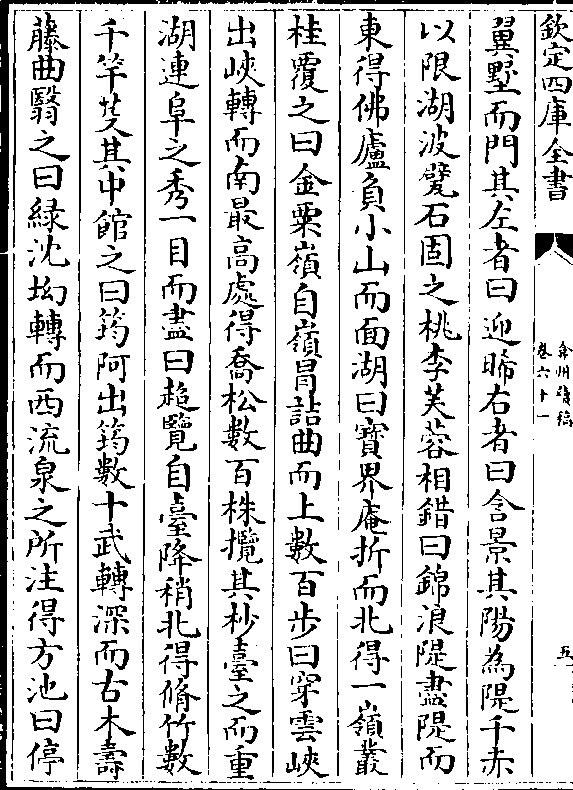 欽定四庫全書
弇州續稿
卷六十一
五
翼墅而門其左者曰迎晞右者曰含景其陽為隄千赤
以限湖波甃石固之桃李芙蓉相錯曰錦浪隄盡隄而
東得佛廬負小山而面湖曰寶界庵折而北得一嶺叢
桂覆之曰金粟嶺自嶺冐詰曲而上數百步曰穿雲峽
出峽轉而南最高處得喬松數百株攬其杪臺之而重
湖連阜之秀一目而盡曰趙覽自臺降稍北得脩竹數
千竿芟其中館之曰筠阿出筠數十武轉深而古木壽
藤曲翳之曰緑沈坳轉而西流泉之所注得方池曰停